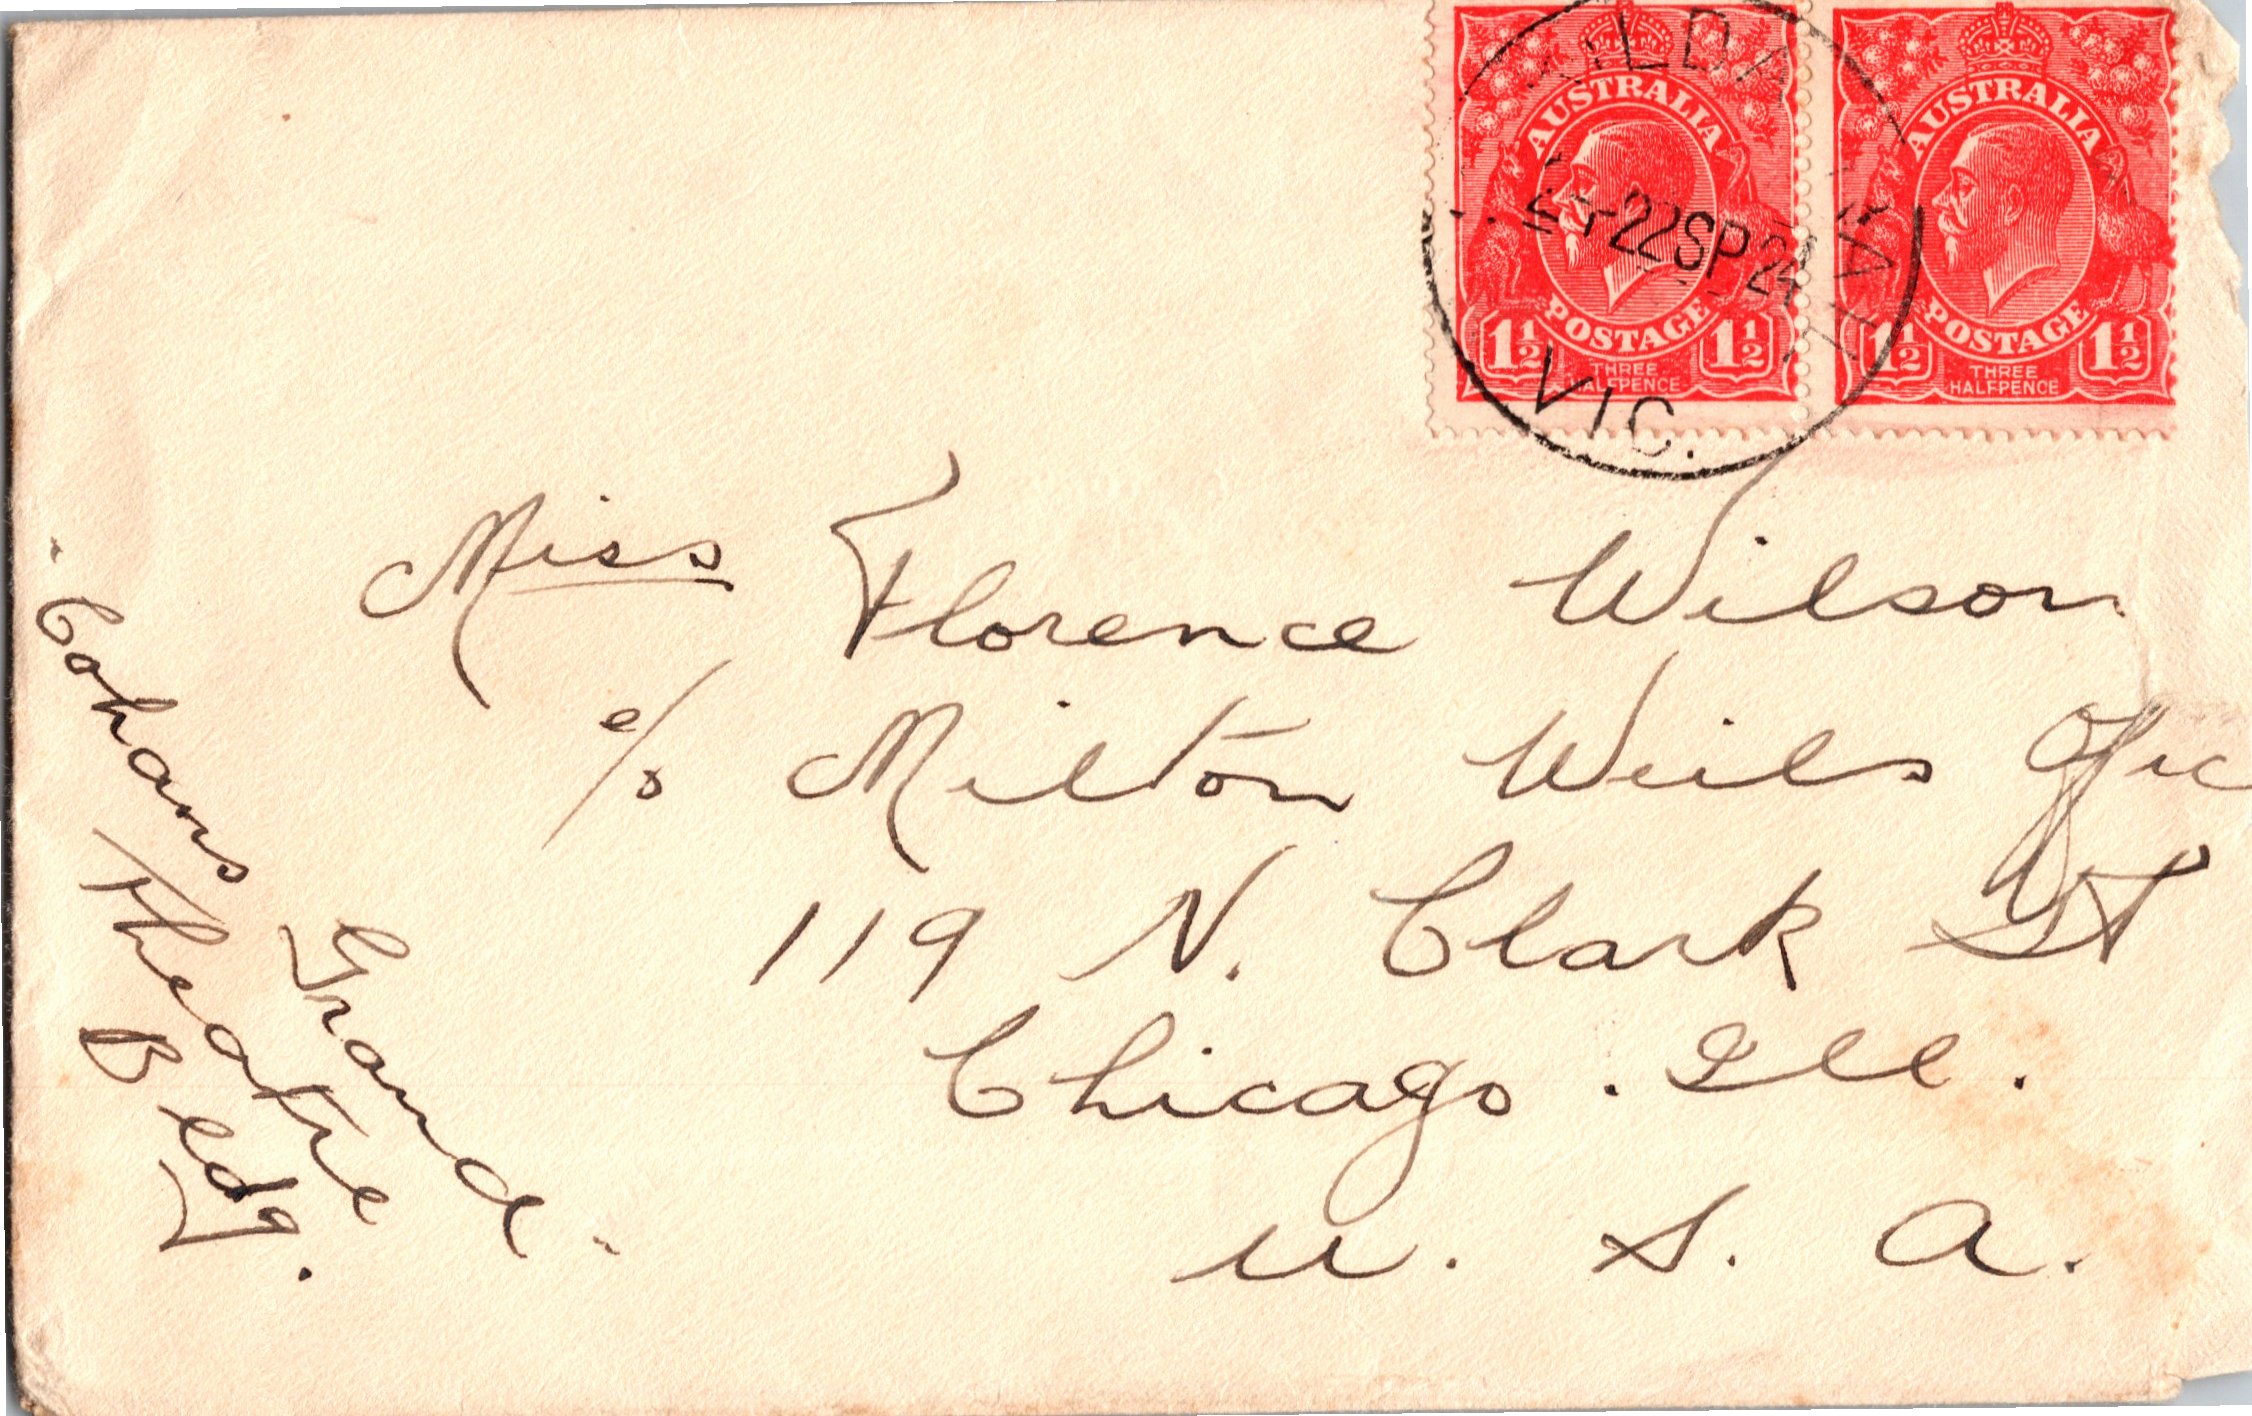 AUSTRALIA
POSTAGE
1½ 1½
THREE
HALFPENCE
AUSTRALIA
POSTAGE
1½ 1½
THREE
HALFPENCE
22 SP 24
VIC.
Miss Florence Wilson
c/o Milton Weils Offic
119 N. Clark St
Chicago. Ill.
U. S. A.
Cohans Grand
Theatre
Bldg.